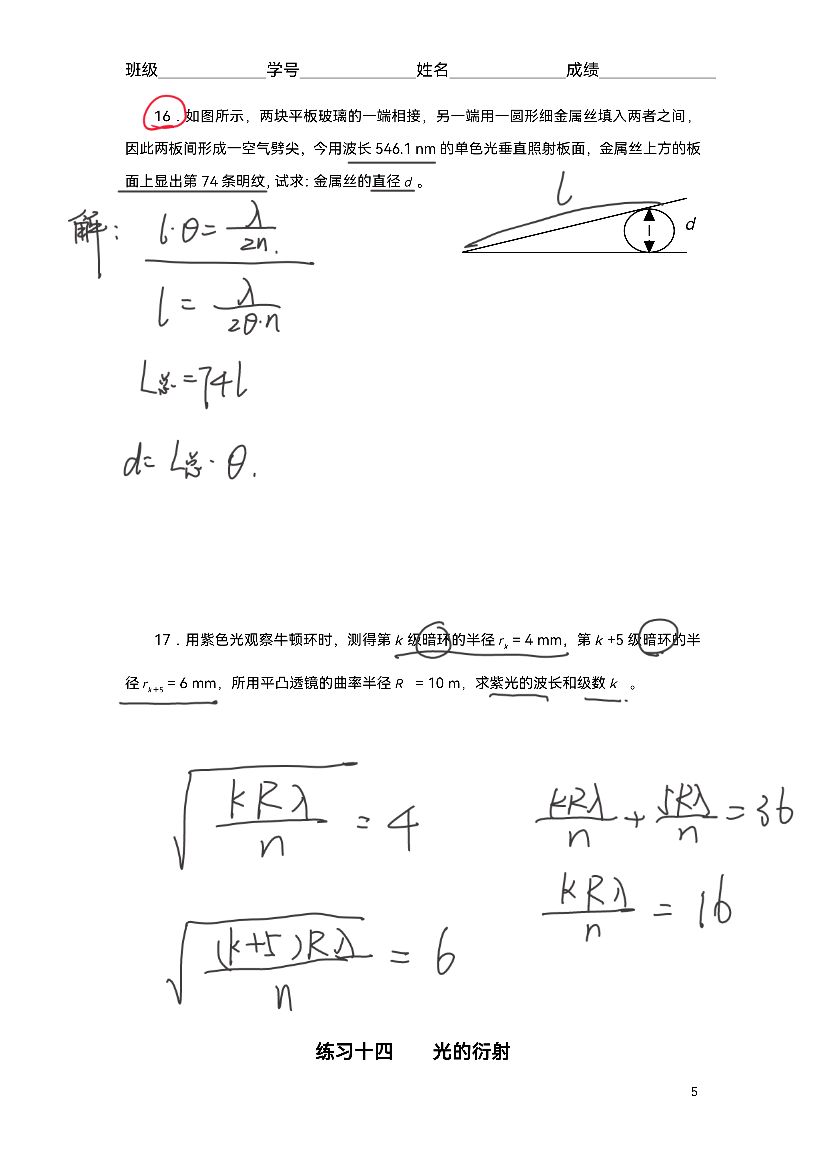 班级 学号 姓名 成绩
16．如图所示，两块平板玻璃的一端相接，另一端用一圆形细金属丝填入两者之间，
因此两板间形成一空气劈尖，今用波长 546.1 nm 的单色光垂直照射板面，金属丝上方的板
面上显出第 74 条明纹, 试求: 金属丝的直径 d 。
l
d
解：
l·θ = λ/2n.
l = λ/2θ·n
L总 = 74l
d = L总·θ.
17．用紫色光观察牛顿环时，测得第 k 级暗环的半径 rₖ = 4 mm，第 k +5 级暗环的半
径 rₖ₊₅ = 6 mm，所用平凸透镜的曲率半径 R = 10 m，求紫光的波长和级数 k 。
√(kRλ/n) = 4
kRλ/n + 5Rλ/n = 36
kRλ/n = 16
√((k+5)Rλ/n) = 6
练习十四 光的衍射
5